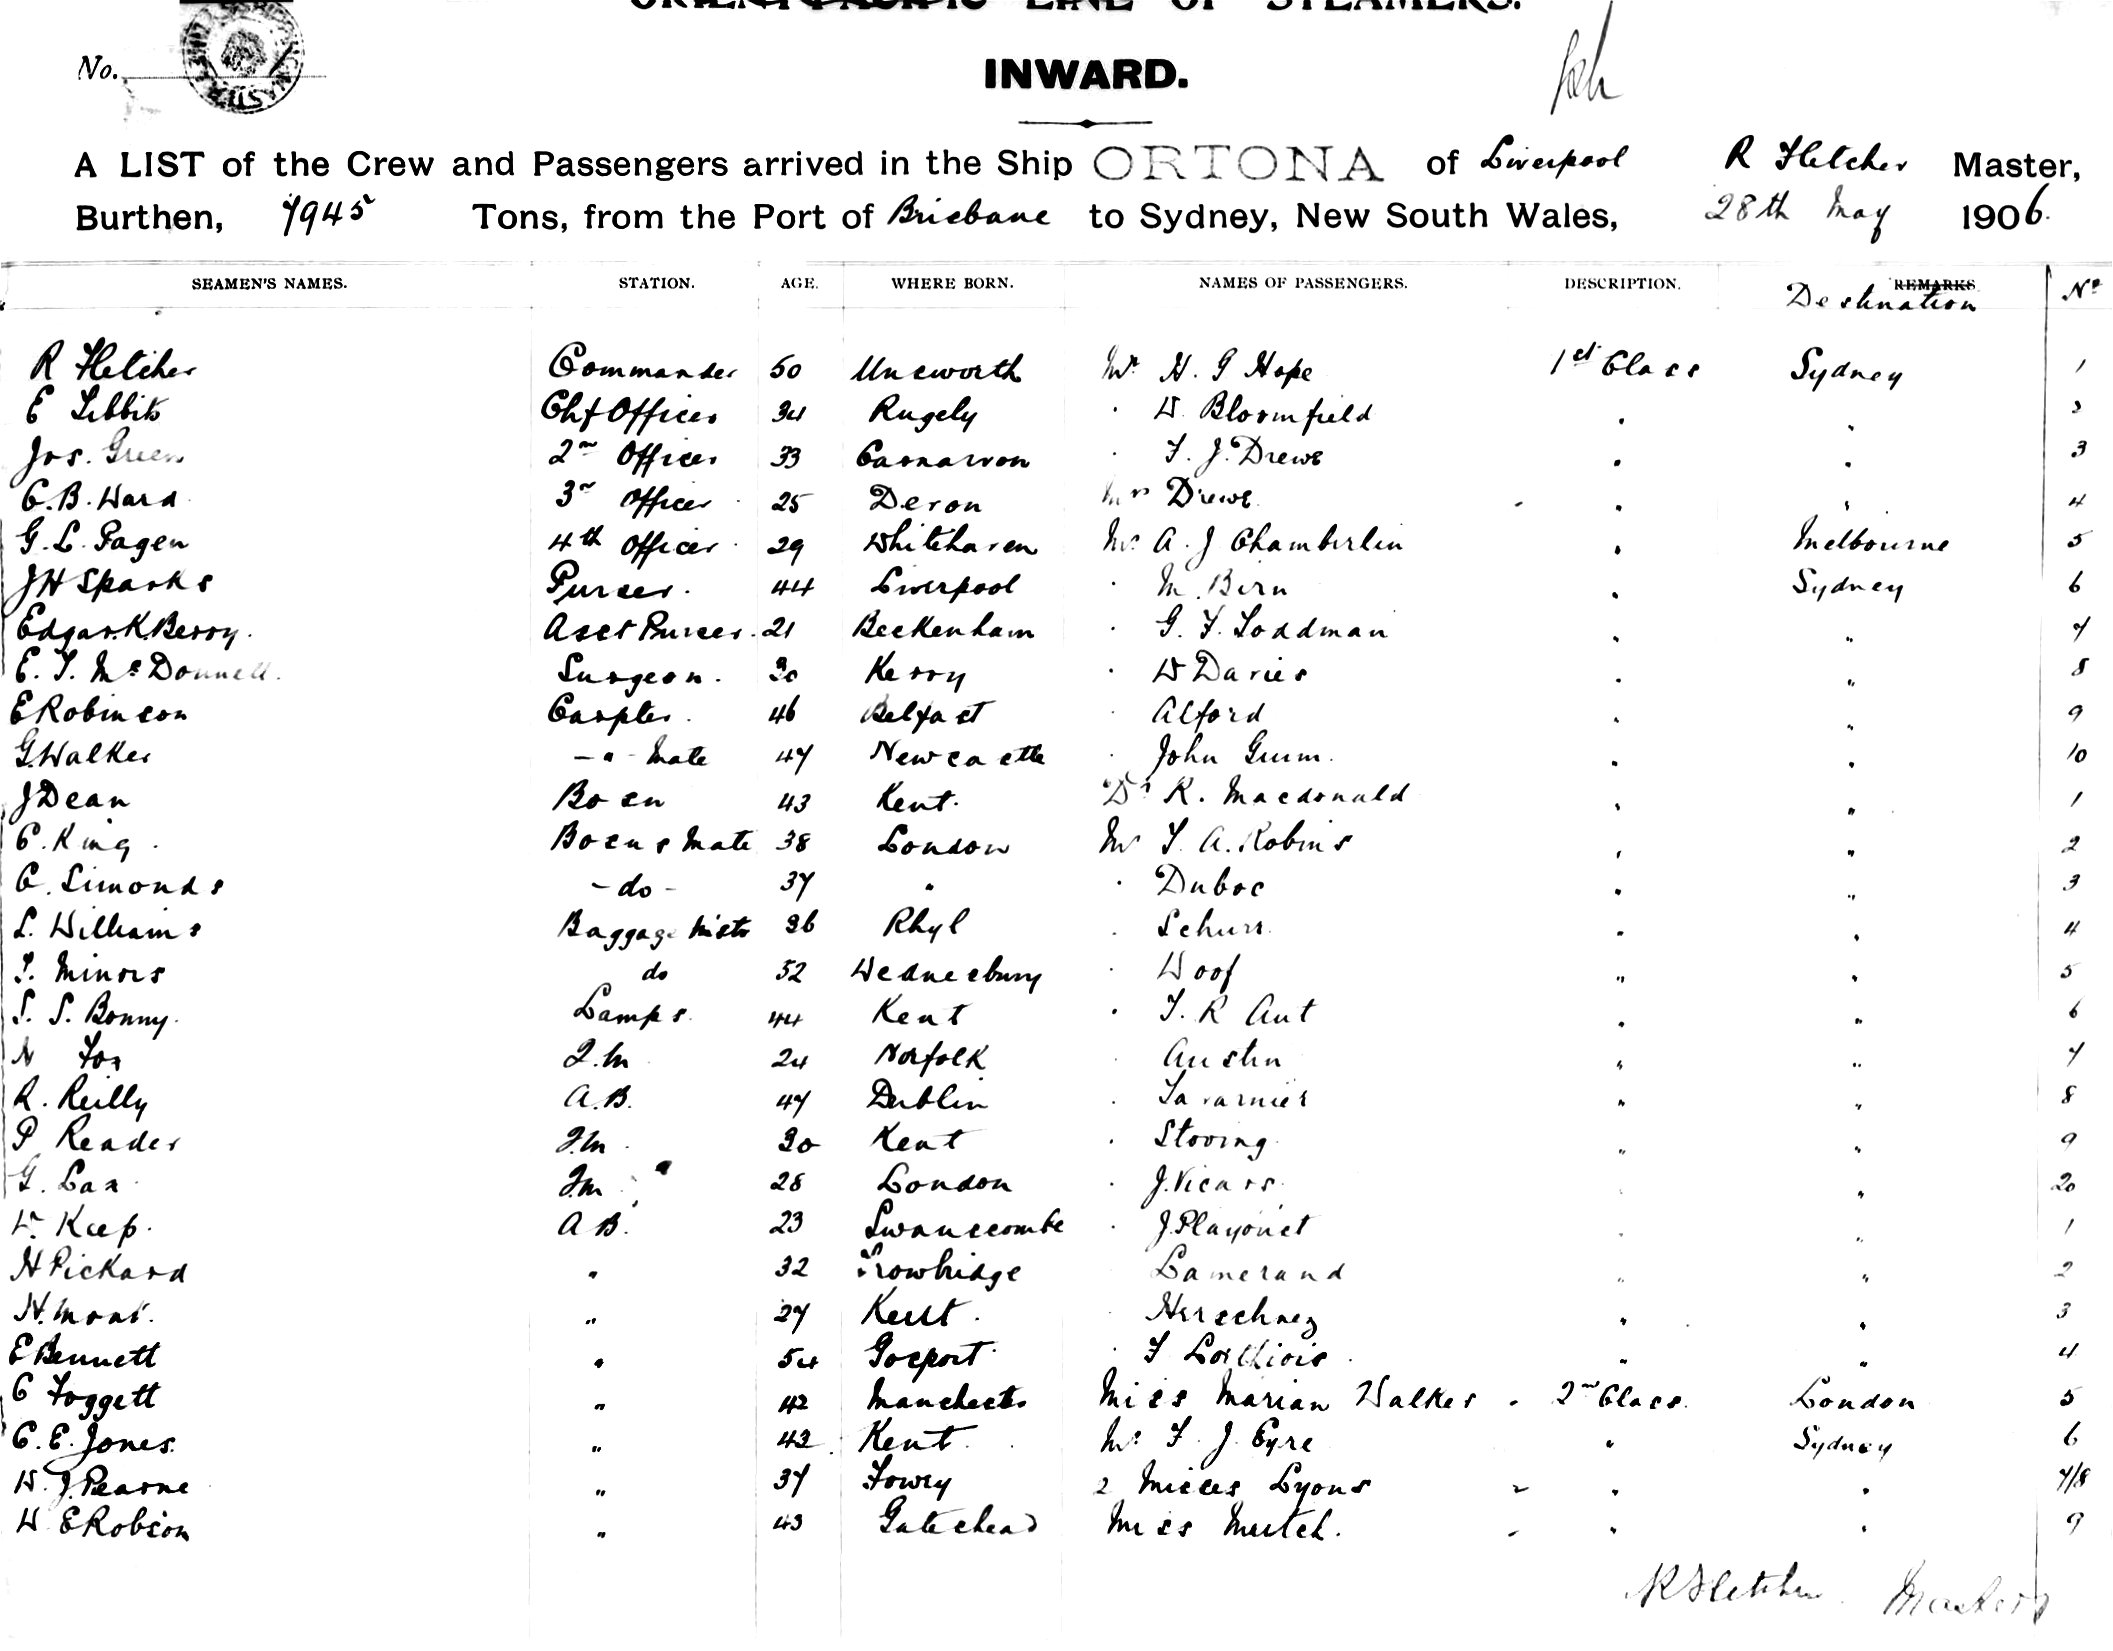 ORIENT-PACIFIC LINE OF STEAMERS.
No.
INWARD.
A LIST of the Crew and Passengers arrived in the Ship ORTONA of Liverpool R Fletcher Master,
Burthen, 7945 Tons, from the Port of Brisbane to Sydney, New South Wales, 28th May 1906.
SEAMEN'S NAMES. STATION. AGE. WHERE BORN. NAMES OF PASSENGERS. DESCRIPTION. REMARKS Destination No
R Fletcher Commander 50 Unsworth Mr H. G Hope 1st Class Sydney 1
E Tibbits Chf Officer 34 Rugely " W. Bloomfield " " 2
Jos. Green 2nd Officer 33 Carnarvon " F. J. Drewe " " 3
C. B. Ward 3rd Officer 25 Devon Mrs Drewe " " 4
G. L. Fagen 4th Officer 29 Whitehaven Mr A. J Chamberlin " Melbourne 5
J H Sparks Purser. 44 Liverpool " M. Birn " Sydney 6
Edgar K Berry. Asst Purser. 21 Beckenham " G. F. Loddman " " 7
E. T. McDonnell. Surgeon. 30 Kerry " W Davies " " 8
E Robinson Carpter. 46 Belfast " Alford " " 9
G. Walker - " - Mate 47 Newcastle " John Gunn. " " 10
J Dean Bosn 43 Kent. Dr R. Macdonald " " 1
C. King. Bosns Mate 38 London Mr F. A. Robins " " 2
C. Simonds - do - 37 " " Duboc " " 3
L. Williams Baggage Mstr 36 Rhyl " Schurr. " " 4
T. Minors do 52 Wednesbury " Woof " " 5
S. S. Bonny. Lamps. 44 Kent " F. R Aut " " 6
N Fox Q.M 24 Norfolk " Austin " " 7
R. Reilly A.B. 47 Dublin " Tavarnier " " 8
P Reader Q.M. 30 Kent " Stoving. " " 9
G. Lax Q.M 28 London " J. Vicars. " " 20
W. Keep. A B. 23 Swanscombe " J. Playonet " " 1
H Pickard " 32 Trowbridge Lamerand " " 2
H. Mont. " 27 Kent. " Herschnez " " 3
E Bennett " 54 Gosport " F Lorthiois " " 4
C Foggett " 42 Manchester Miss Marian Walker 2nd Class. London 5
C. E. Jones. " 42 Kent. Mr F. J. Eyre " Sydney 6
W. J. Pearne " 37 Fowey 2 Misses Lyons " " 7/8
W E Robson " 43 Gateshead Miss Mutch. " " 9
R Fletcher Master